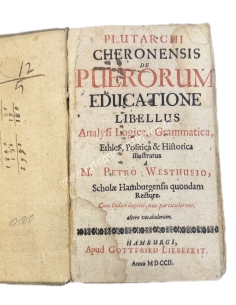 PLUTARCHI
CHERONENSIS
DE
PUERORUM
EDUCATIONE
LIBELLUS
Analysi Logica, Grammatica,
Ethica, Politica & Historica
illustratus
A
M. PETRO WESTHUSIO,
Scholæ Hamburgensis quondam
Rectore.
Cum Indice duplici, uno particularum,
altero vocabulorum.
HAMBURGI,
Apud GOTTFRIED LIEBEZEIT.
Anno MDCCII.
12